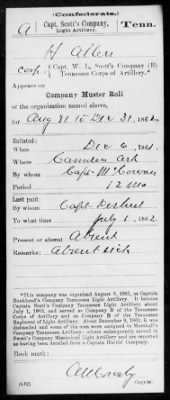 (Confederate.)
A
Capt. Scott's Company,
Light Artillery.
Tenn.
H Allen
Corp., Capt. W. L. Scott's Company (B)
Tennessee Corps of Artillery.*
Appears on
Company Muster Roll
of the organization named above,
for Aug 31 to Dec 31, 1862.
Enlisted:
When Dec 6, 1861.
Where Camden Ark
By whom Capt McCowan
Period 12 mo
Last paid:
By whom Capt
To what time July 1, 1862.
Present or absent Absent
Remarks: Absent sick
*This company was organized August 9, 1861, as Captain
Bankhead's Company Tennessee Light Artillery. It became
Captain Scott's Company Tennessee Light Artillery about
July 1, 1862, and served as Company B of the Tennessee
Corps of Artillery and as Company D of the Tennessee
Regiment of Light Artillery. About December 9, 1863, it was
disbanded and some of the men were assigned to Marshall's
Company Tennessee Artillery; others subsequently served in
Swett's Company Mississippi Light Artillery and are reported
as having been detailed from Captain Scott's Company.
Book mark:
(642)
Copyist.